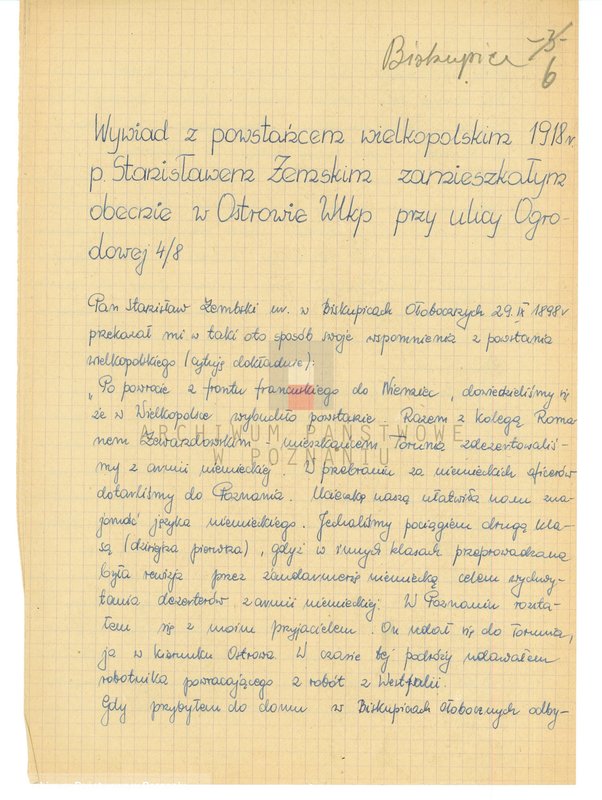 Biskupice -3-
6
Wywiad z powstańcem wielkopolskim 1918r.
p. Stanisławem Zemskim zamieszkałym
obecnie w Ostrowie Wlkp przy ulicy Ogro-
dowej 4/8
Pan Stanisław Zembski ur. w Biskupicach Ołobocznych 29. IX 1898r
przekazał mi w taki oto sposób swoje wspomnienia z powstania
wielkopolskiego (cytuję dokładnie):
"Po powrocie z frontu francuskiego do Niemiec, dowiedzieliśmy się
że w Wielkopolsce wybuchło powstanie. Razem z kolegą Roma-
nem - mieszkańcem Torunia zdezertowaliś-
my z armii niemieckiej. W przebraniu za niemieckich oficerów
dotarliśmy do Poznania. Ucieczkę naszą ułatwiła nam zna-
jomość języka niemieckiego. Jechaliśmy pociągiem drugą kla-
są (dzisiejsza pierwsza), gdyż w innych klasach przeprowadzana
była rewizja przez żandarmerię niemiecką celem wychwy-
tania dezerterów z armii niemieckiej. W Poznaniu rozsta-
łem się z moim przyjacielem. On udał się do Torunia,
ja w kierunku Ostrowa. W czasie tej podróży udawałem
robotnika powracającego z robót z Westfalii.
Gdy przybyłem do domu w Biskupicach Ołobocznych odby-
ARCHIWUM PAŃSTWOWE
W POZNANIU